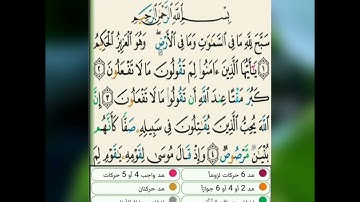 بِسْمِ اللَّهِ الرَّحْمَٰنِ الرَّحِيمِ
سَبَّحَ لِلَّهِ مَا فِي السَّمَٰوَٰتِ وَمَا فِي الْأَرْضِ ۖ وَهُوَ الْعَزِيزُ الْحَكِيمُ
١ يَٰٓأَيُّهَا الَّذِينَ ءَامَنُوا لِمَ تَقُولُونَ مَا لَا تَفْعَلُونَ ٢
كَبُرَ مَقْتًا عِندَ اللَّهِ أَن تَقُولُوا مَا لَا تَفْعَلُونَ ٣ إِنَّ
اللَّهَ يُحِبُّ الَّذِينَ يُقَٰتِلُونَ فِي سَبِيلِهِ صَفًّا كَأَنَّهُم
بُنْيَٰنٌ مَّرْصُوصٌ ٤ وَإِذْ قَالَ مُوسَىٰ لِقَوْمِهِ يَٰقَوْمِ لِمَ
مد 6 حركات لزوماً مد واجب 4 أو 5 حركات
مد 2 أو 4 أو 6 جوازاً مد حركتان